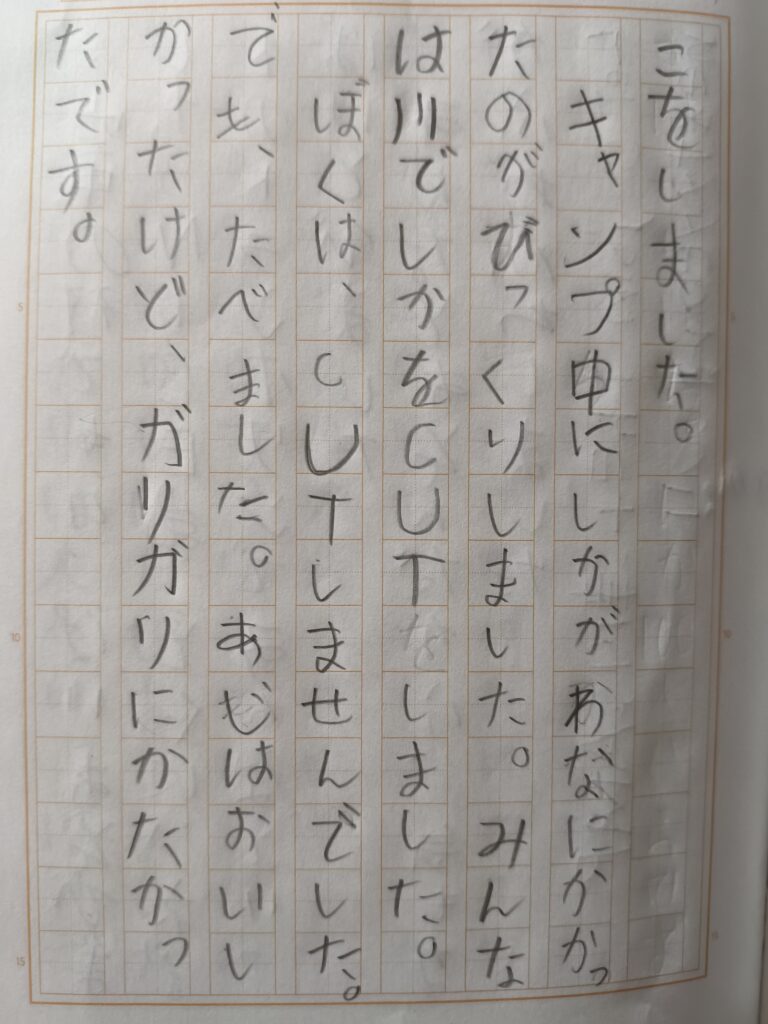 こをしました。
キャンプ申にしかがわなにかかっ
たのがびっくりしました。みんな
は川でしかをCUTしました。
ぼくは、CUTしませんでした。
でも、たべました。あじはおいし
かったけど、ガリガリにかたかっ
たです。
5
10
15